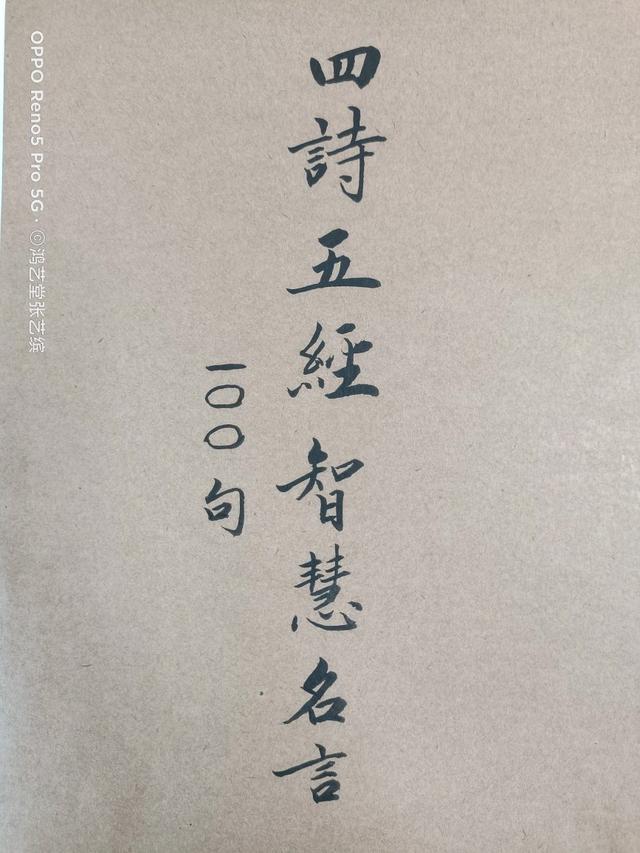 四詩五經智慧名言
一〇〇句
OPPO Reno5 Pro 5G · ©鸿艺堂张艺缤